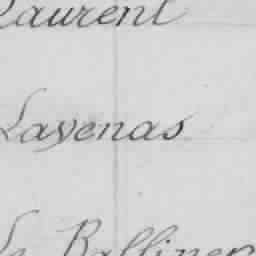 Laurent
Lavenas
Le Balliner